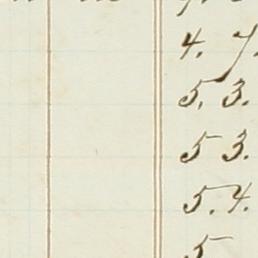 4. 7.
5. 3.
5 3.
5. 4.
5